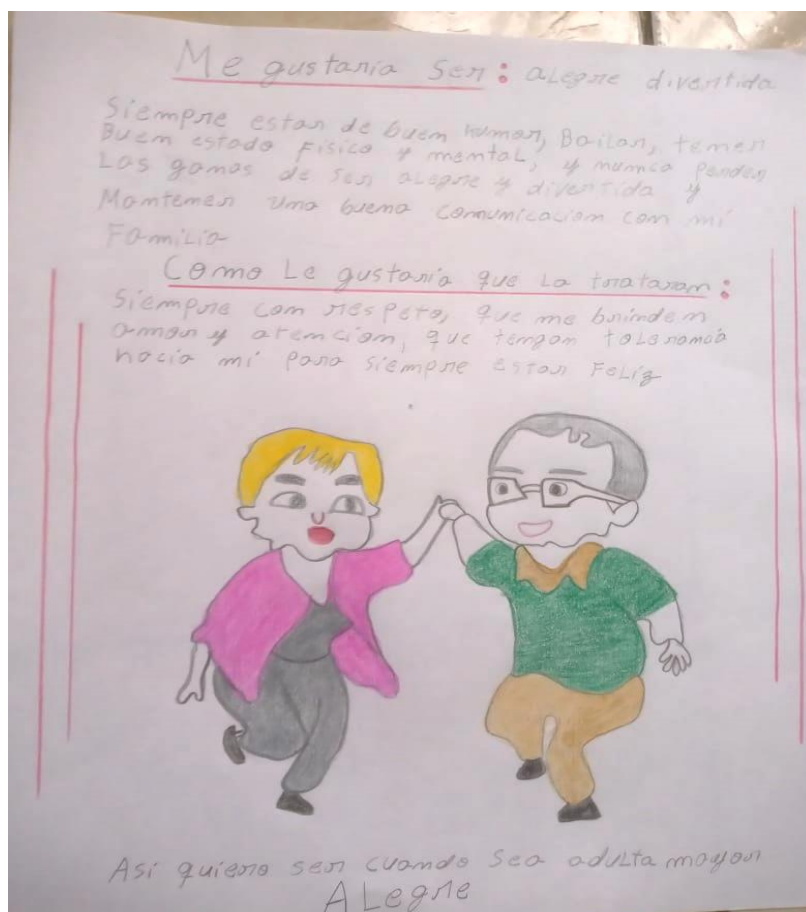 Me gustaria Ser: aLegre divertida
Siempre estar de buen humor, Bailar, tener
Buen estado Fisico y mental, y nunca Perder
Las ganas de ser aLegre y divertida y
Mantener una buena comunicacion con mi
Familia
Como Le gustaria que La trataran:
Siempre con respeto, que me brinden
amor y atencion, que tengan toLerancia
hacia mi para siempre Estar FeLiz
Asi quiero ser cuando sea aduLta mayor
ALegre